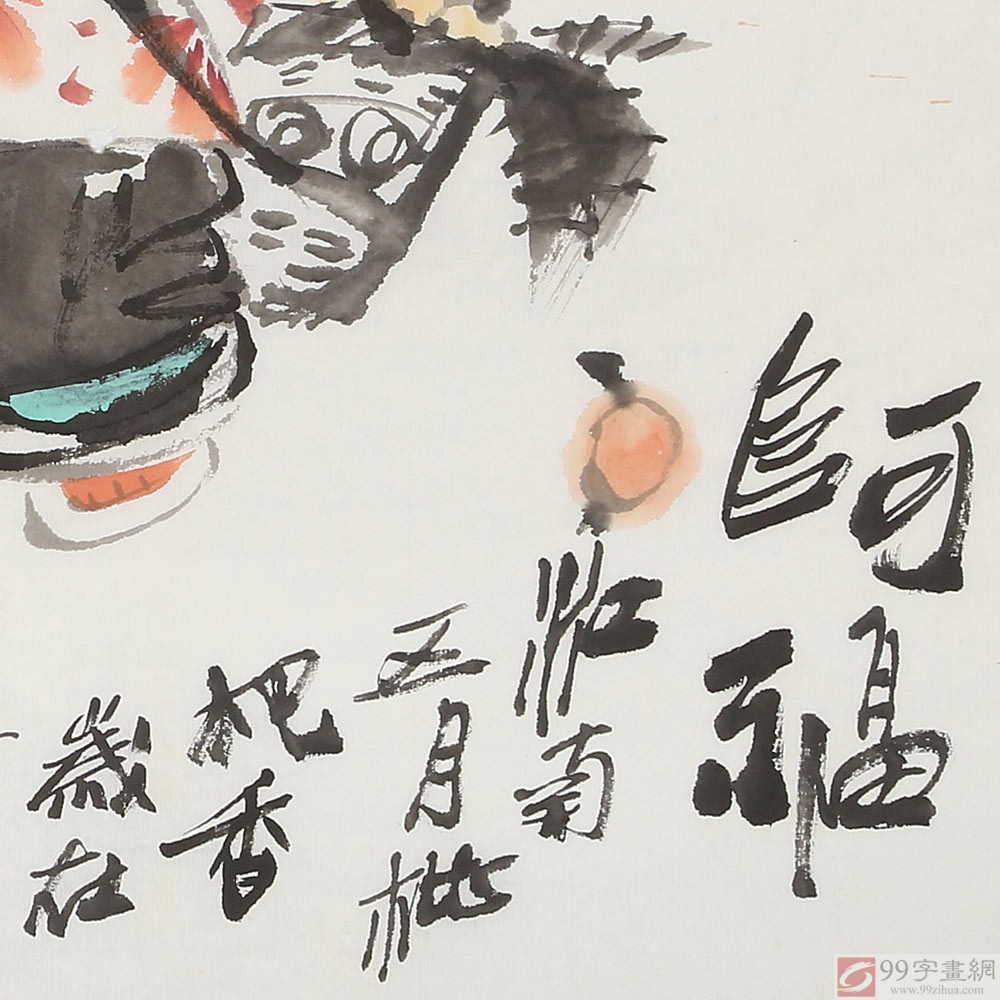 福
江南
五月枇
杷香
歲在
99字畫網
www.99zihua.com